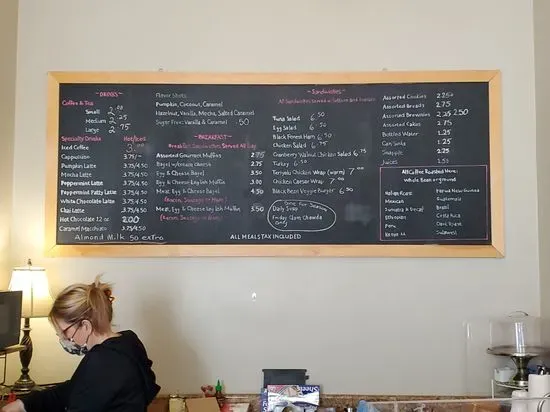 ~DRINKS~
Coffee & Tea
Small 2.00
Medium 2.25
Large 2.75
Specialty Drinks Hot/Iced
Iced Coffee 3.00
Cappuccino 3.75/-
Pumpkin Latte 3.75/4.50
Mocha Latte 3.75/4.50
Peppermint Latte 3.75/4.50
Peppermint Patty Latte 3.75/4.50
White Chocolate Latte 3.75/4.50
Chai Latte 3.75/4.50
Hot Chocolate 12 oz 3.00
Caramel Macchiato 3.75/4.50
Almond Milk 50 extra
Flavor Shots
Pumpkin, Coconut, Caramel
Hazelnut, Vanilla, Mocha, Salted Caramel
Sugar Free: Vanilla & Caramel .50
~BREAKFAST~
Breakfast Sandwiches Served All Day
Assorted Gourmet Muffins 2.75
Bagel w/cream cheese 2.75
Egg & Cheese Bagel 3.50
Egg & Cheese English Muffin 3.00
Meat, Egg & Cheese Bagel 4.50
(Bacon, Sausage or Ham)
Meat, Egg & Cheese English Muffin 3.50
(Bacon, Sausage or Ham)
~Sandwiches~
All Sandwiches Served w/lettuce and
Tuna Salad 6.50
Egg Salad 6.50
Black Forest Ham 6.50
Chicken Salad 6.75
Cranberry Walnut Chicken Salad 6.75
Turkey 6.50
Teriyaki Chicken Wrap (warm) 7.00
Chicken Caesar Wrap 7.00
Black Bean Veggie Burger 6.50
Daily Soup
Friday Clam Chowda
ALL MEALS TAX INCLUDED
Assorted Cookies 2.25+
Assorted Breads 2.75
Assorted Brownies 2.25 2.50
Assorted Cakes 2.75
Bottled Water 1.25
Can Soda 1.25
Snapple 2.25
Juices 1.50
All Coffee Roasted Here:
Whole Bean or ground
Italian Roast Papua New Guinea
Mexican Guatemala
Sumatra & Decaf Brazil
Ethiopian Costa Rica
Peru Dark Roast
Kenya AA Sulawesi